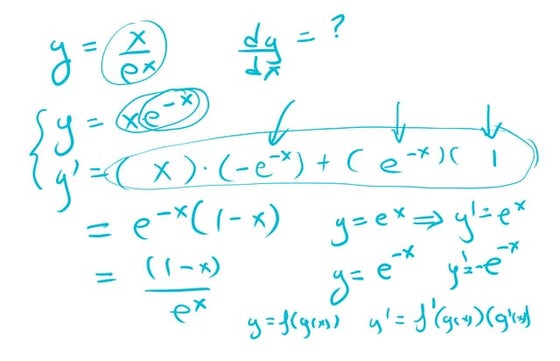 y = x/e^x   dy/dx = ?
y = xe^-x
y' = ( x ) · (-e^-x) + ( e^-x )( 1
= e^-x(1-x)   y = e^x ⇒ y' = e^x
= (1-x)/e^x   y = e^-x   y' = -e^-x
y = f(g(x))   y' = f'(g(x))(g'(x))